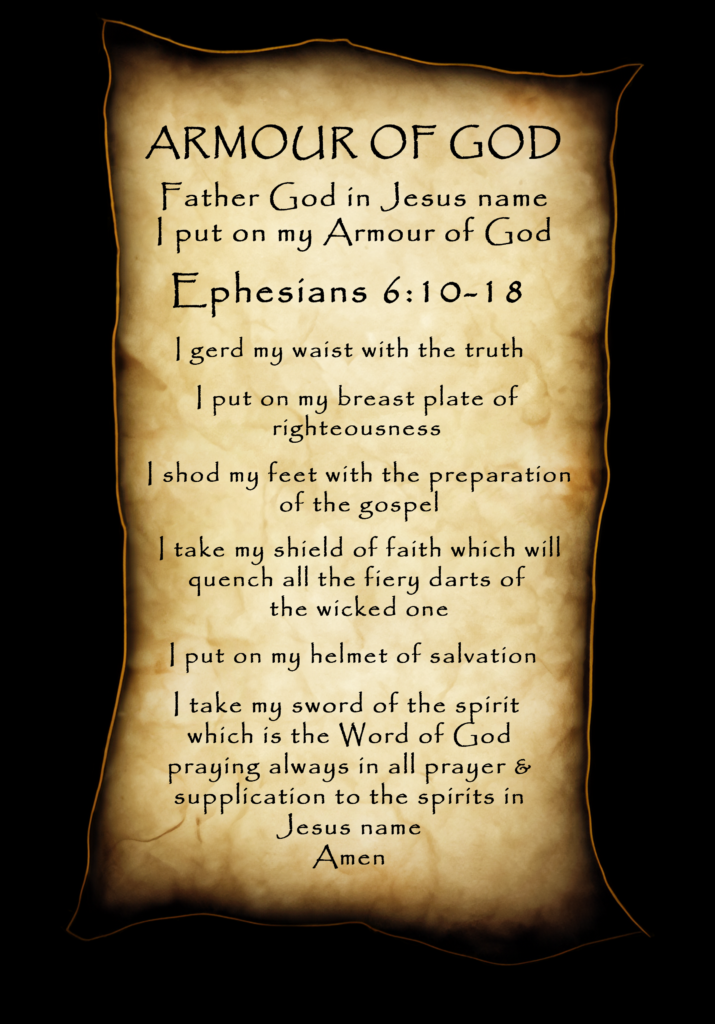 ARMOUR OF GOD
Father God in Jesus name
I put on my Armour of God
Ephesians 6:10-18
I gerd my waist with the truth
I put on my breast plate of
righteousness
I shod my feet with the preparation
of the gospel
I take my shield of faith which will
quench all the fiery darts of
the wicked one
I put on my helmet of salvation
I take my sword of the spirit
which is the Word of God
praying always in all prayer &
supplication to the spirits in
Jesus name
Amen